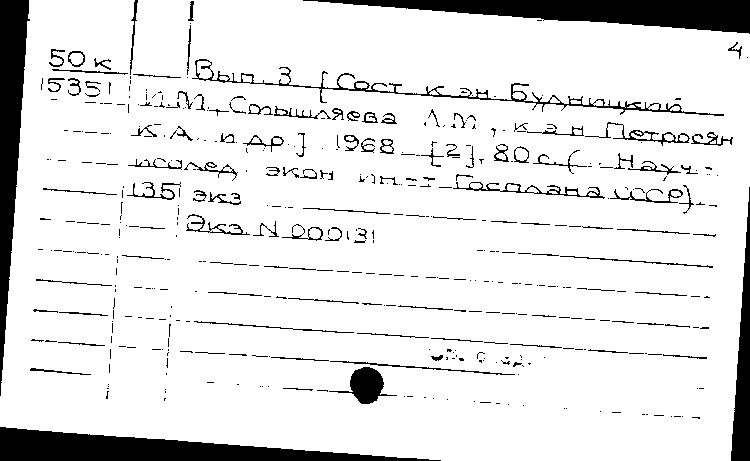 4.
50к Вып. 3 [Сост. к. эн. Будницкий
15351 И.М., Смышляева Л.М., к э н Петросян
К.А. и др.] 1968 [2], 80 с. (Науч.-
исслед. экон ин-т Госплана СССР).
135 экз
Экз. N 000131